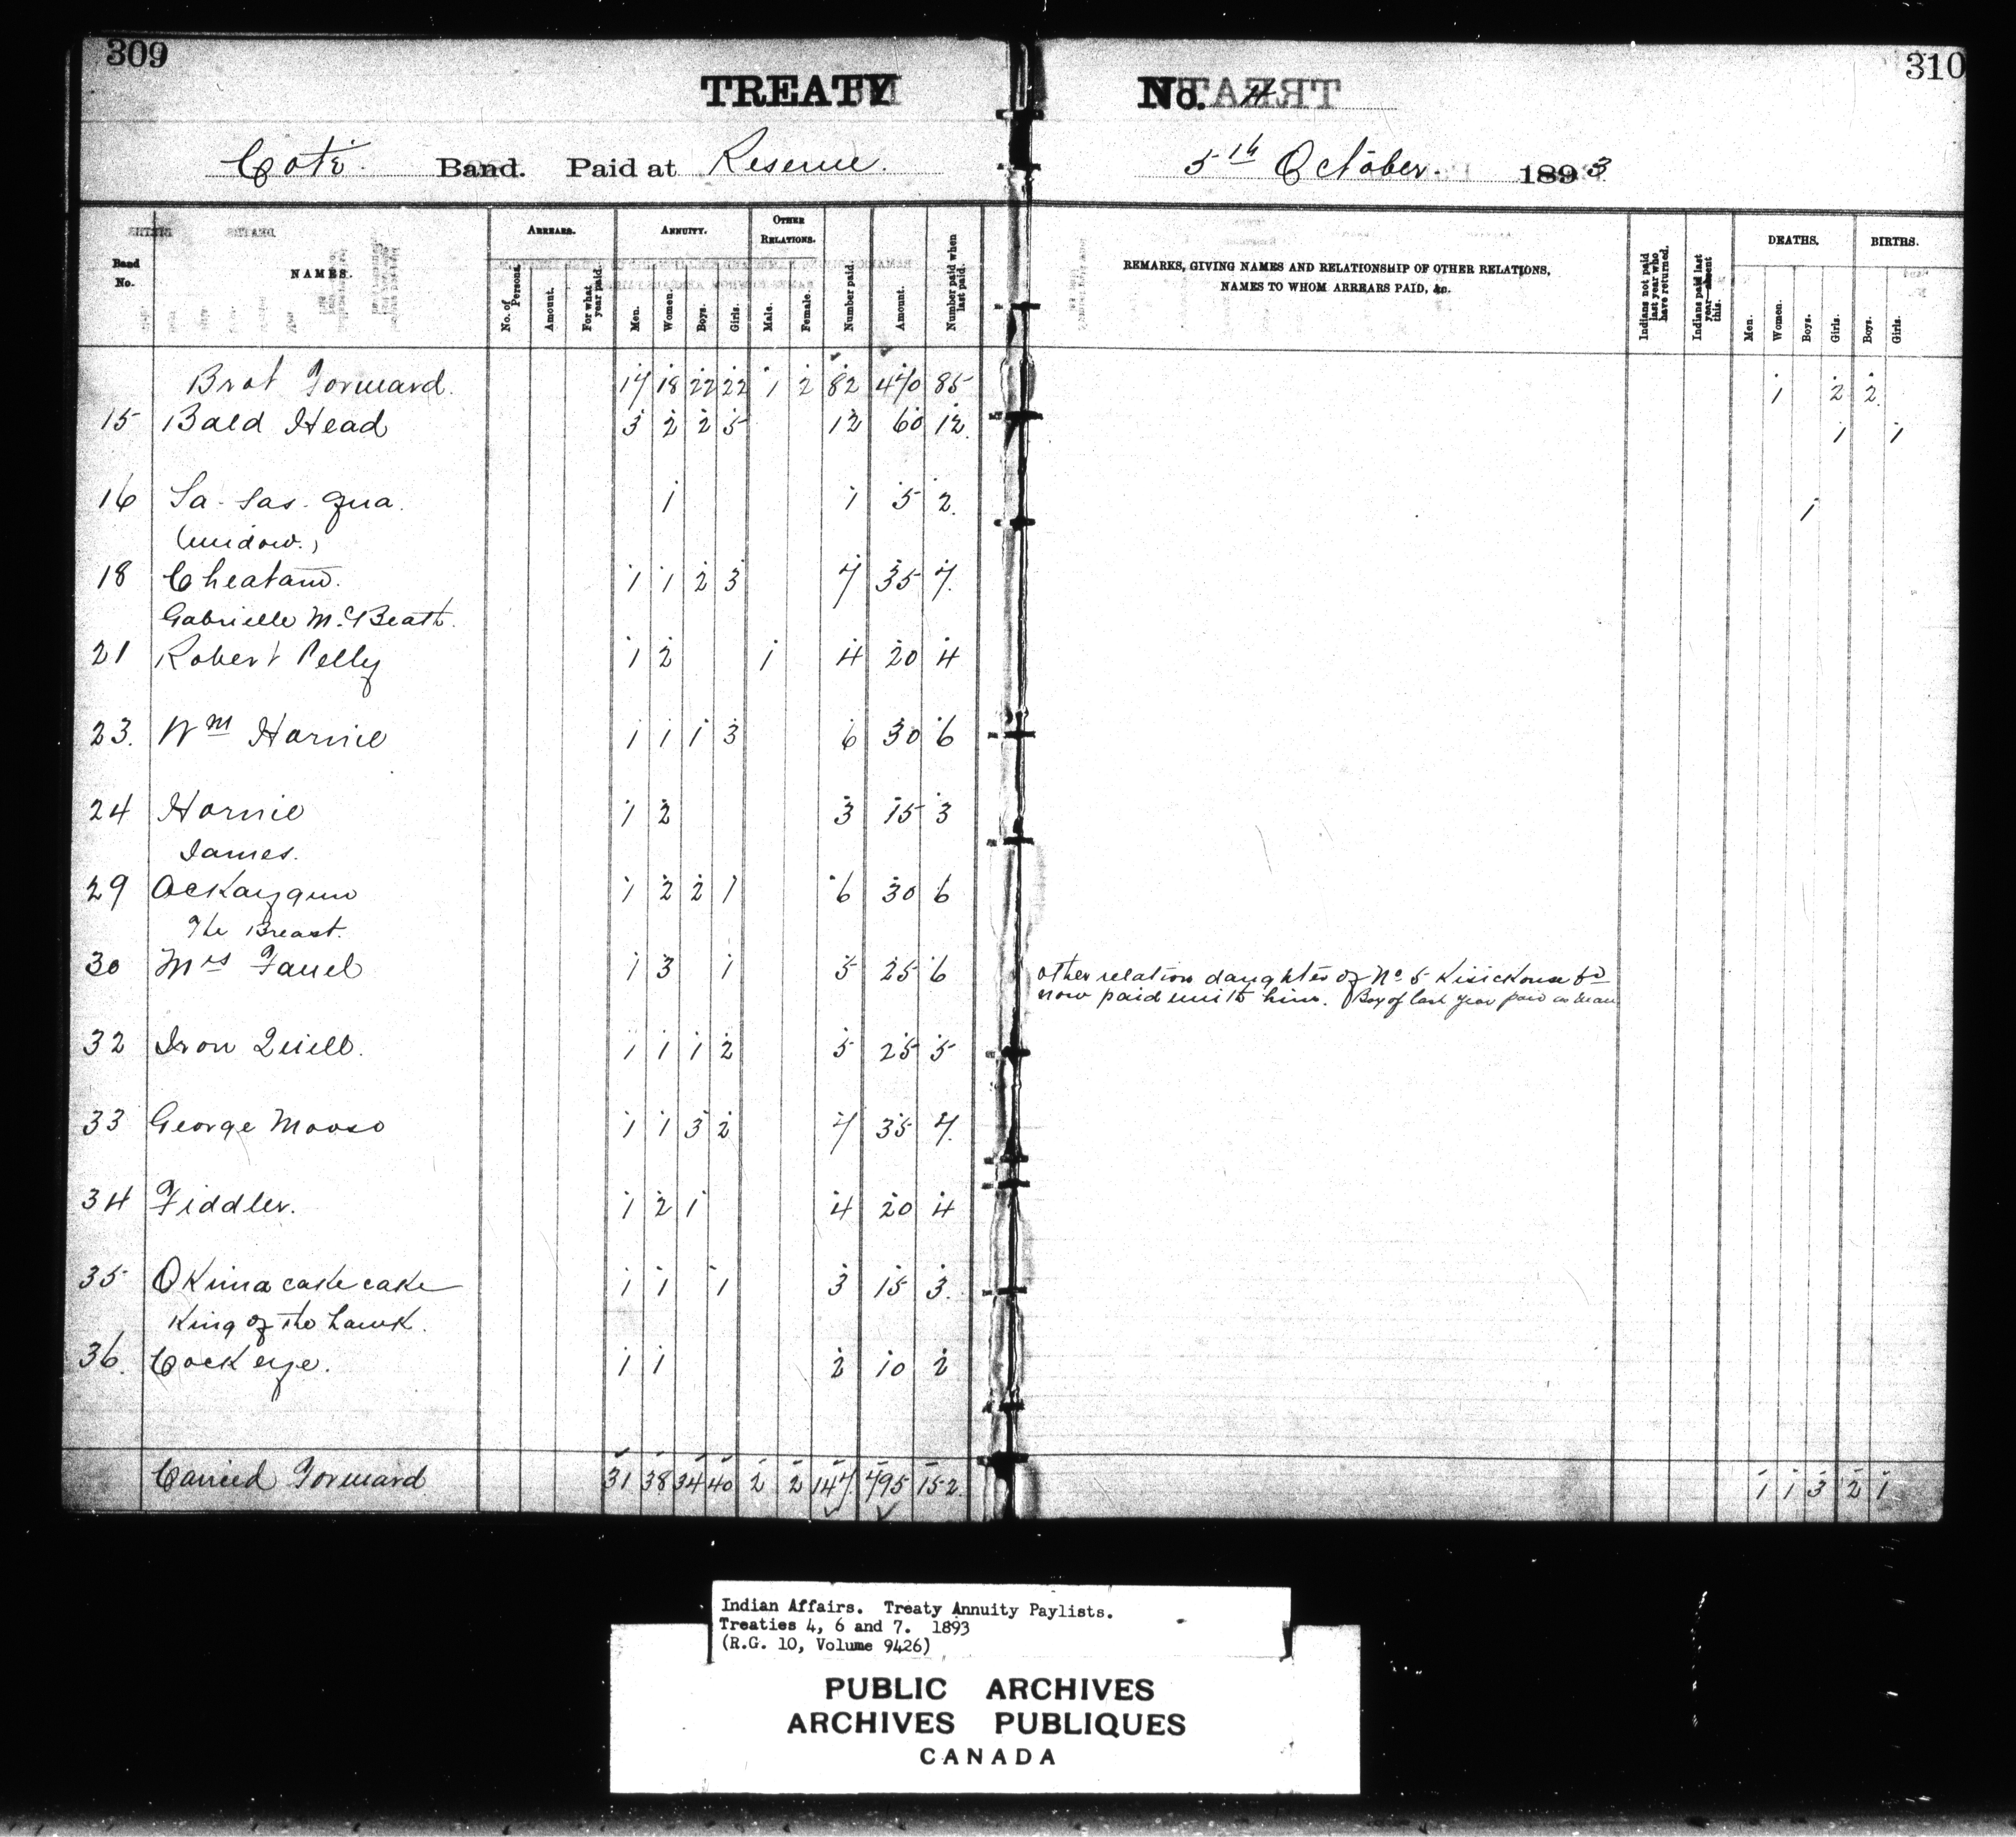 309
310
TREATY No. 4
Coté. Band. Paid at Reserve. 5th October. 1893
Band No. NAMES. ARREARS. No. of Persons. Amount. For what year paid. ANNUITY. Men. Women. Boys. Girls. OTHER RELATIONS. Male. Female. Number paid. Amount. Number paid when last paid. REMARKS, GIVING NAMES AND RELATIONSHIP OF OTHER RELATIONS, NAMES TO WHOM ARREARS PAID, &c. Indians not paid last year who have returned. Indians paid last year absent this. DEATHS. Men. Women. Boys. Girls. BIRTHS. Boys. Girls.
Brot Forward. 17 18 22 22 1 2 82 470 85 1 2 2
15 Bald Head 3 2 2 5 12 60 12 1 1
16 Sa-sas-qua. 1 1 5 2 1
(widow.)
18 Cheatam. 1 1 2 3 7 35 7
Gabrielle McBeath.
21 Robert Pelly 1 2 1 4 20 4
23. Wm Hornie 1 1 1 3 6 30 6
24 Hornie 1 2 3 15 3
James.
29 Ackayquin 1 2 2 1 6 30 6
The Breast.
30 Mrs 1 3 1 5 25 6 other relation daughter of No 5
now paid with him. Boy of last year paid as man
32 Iron Quill. 1 1 1 2 5 25 5
33 George Mooso 1 1 3 2 7 35 7
34 Fiddler. 1 2 1 4 20 4
35 Okimacakecake 1 1 1 3 15 3
King of the Hawk.
36. Cock eye. 1 1 2 10 2
Carried Forward 31 38 34 40 2 2 147 795 152 1 1 3 2 1
Indian Affairs. Treaty Annuity Paylists.
Treaties 4, 6 and 7. 1893
(R.G. 10, Volume 9426)
PUBLIC ARCHIVES
ARCHIVES PUBLIQUES
CANADA